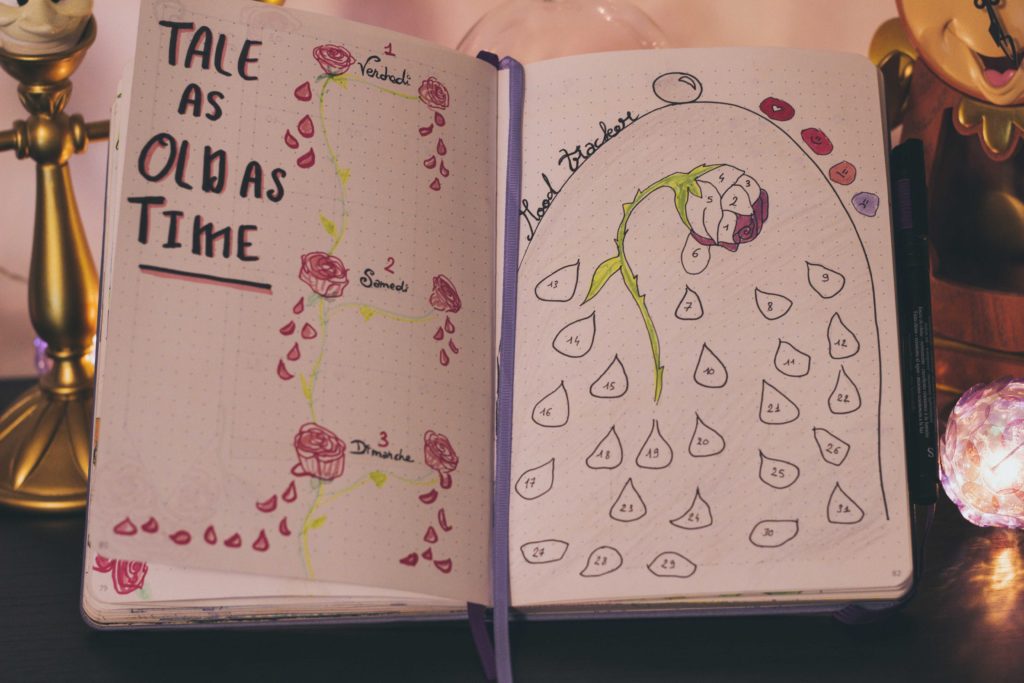 TALE
AS
OLD AS
TIME
1
Verdedi
2
Samedi
3
Dimanche
79
Mood tracker
4
3
5
2
1
6
9
13
7
8
12
14
10
11
15
22
16
21
18
19
20
26
17
25
23
24
31
30
27
28
29
82